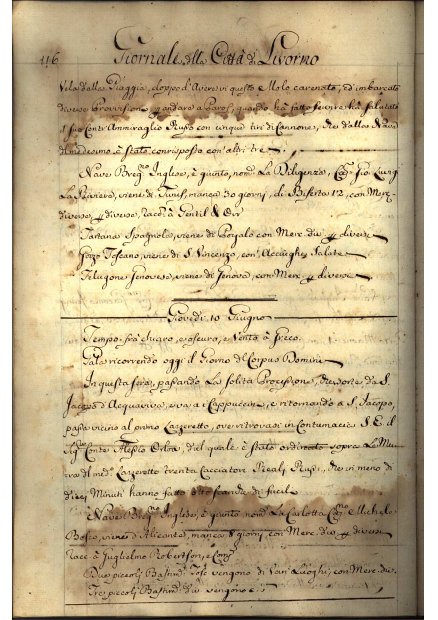 116 Giornale della Città di Livorno
Vela dalla Piaggia, e doppo d'Avere in questo Molo carenato, ed imbarcato
diverse Provvisioni, andare a Paros, quando ha fatto ha salutato
il suo Contr'Ammiraglio Russo con cinque tiri di Cannone, che dalla Nave
medesimo è stato corrisposto con altri tre
Nave Bregno Inglese, è giunto, nomo La Diligenza, Capno Gio Luigi
La Riviere, viene di Tunis, manca 30 giorni, di Biserta 12, con Merc.
diverse, p diversi, racco a Gentil & Orr
Tartana Spagnola, viene di con Merc. div. p diversi
Gozzo Toscano, viene di S. Vincenzo, con Acciughe Salate
Filugone Genovese, viene di Genova, con Merc. p diversi
Giovedì 10 Giugno
Tempo frà chiaro, e oscuro, e Vento à Greco
Gala ricorrendo oggi il Giorno del Corpus Domini
In questa sera, passando La solita Processione, che sorte da S.
Jacopo d'Acquaviva, e và a Cappuccini, e ritornando a S. Jacopo,
passa vicino al primo Lazzeretto, ove ritrovasi in Contumacia S. E. il
Sigre Conte Alessio Orlow, dal quale è stato ordinato sopra Le Mu-
ra del medo Lazzeretto trenta Cacciatori Reali Russi, che in meno di
dieci Minuti hanno fatto otto scariche di fucili
Nave Bregno Inglese, è giunto, nomo La Carlotta Capno Michele
Bosco, viene d'Alicante, manca 8 giorni, con Merc. div. p diversi
Racc. à Guglielmo Robertson, e Compi
Due piccoli Bastimti Tosc vengono di Vari Luoghi, con Merc. div.
Tre piccoli Bastimti div vengono